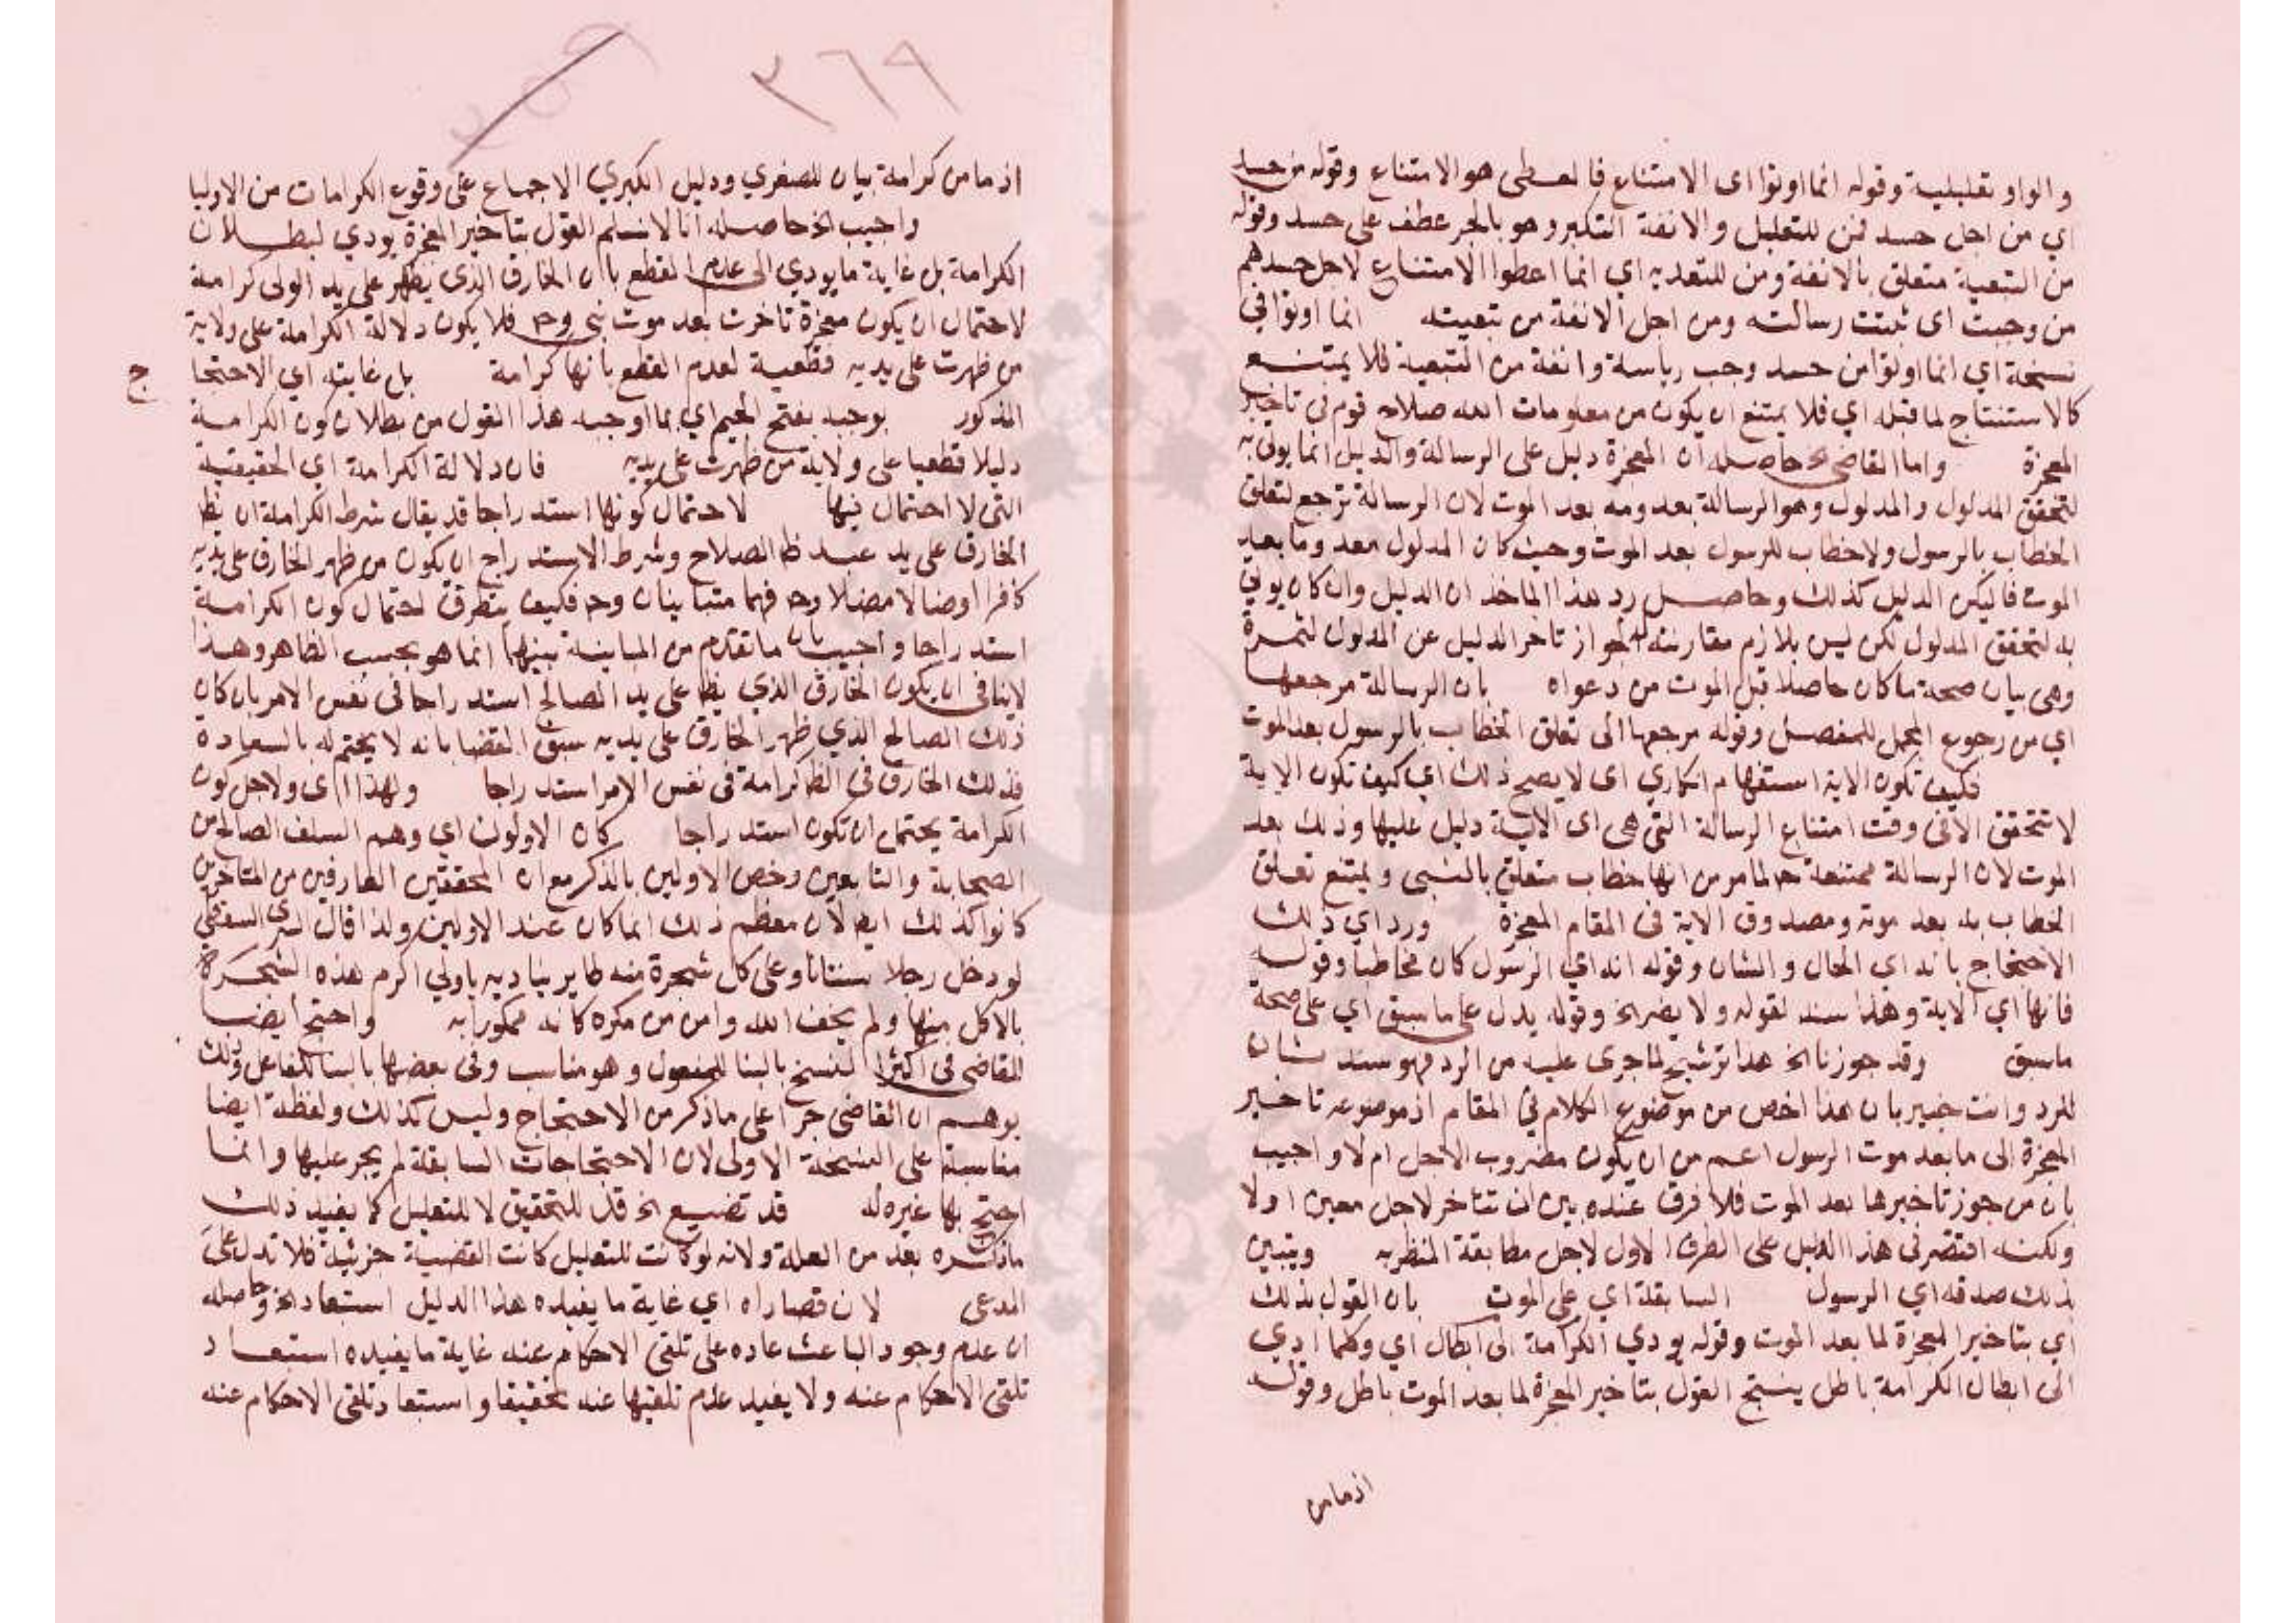 والواو تعليلية وقوله انما اوتوا اى الامتناع فالمعطى هو الامتناع وقوله من حسد
اي من اجل حسد فمن للتعليل والانفة التكبر وهو بالجر عطف على حسد وقوله
من التبعية متعلق بالانفة ومن للتعدية اي انما اعطوا الامتناع لاجل حسدهم
من وجبت اى ثبتت رسالته ومن اجل الانفة من تبعيته انما اوتوا في
نسخة اي انما اوتوا من حسد وجب رياسة وانفة من التبعية فلا يمتنع
كالاستنتاج لما قبله اي فلا يمتنع ان يكون من معلومات الله صلاح قوم فى تاخير
المعجزة واما القاضى الخ حاصله ان المعجزة دليل على الرسالة والدليل انما يوتى به
لتحقق المدلول والمدلول وهو الرسالة معدومه بعد الموت لان الرسالة ترجع لتعلق
الخطاب بالرسول ولا خطاب للرسول بعد الموت وحيث كان المدلول معدوما بعد
الموت فاليكن الدليل كذلك وحاصل رد هذا الماخذ ان الدليل وان كان يوتى
به لتحقق المدلول لكن ليس بلازم مقارنته له لجواز تاخر الدليل عن المدلول لثمرة
وهى بيان صحة ما كان حاصلا قبل الموت من دعواه بان الرسالة مرجعها
اي من رجوع المجمل للمفصل وقوله مرجعها الى تعلق الخطاب بالرسول بعد الموت
فكيف تكون الاية استفهام انكاري اى لا يصح ذلك اي كيف تكون الاية
لا تتحقق الا فى وقت امتناع الرسالة التى هى اى الاية دليل عليها وذلك بعد
الموت لان الرسالة ممتنعة ح لما مر من انها خطاب متعلق بالنبى ويمتنع تعلق
الخطاب به بعد موته ومصدوق الاية فى المقام المعجزة ورد اي ذلك
الاحتجاج بانه اي الحال والشان وقوله انه اي الرسول كان مخاطبا وقوله
فانها اي الاية وهذا سند لقوله ولا يضر الخ وقوله يدل على ما سبق اي على صحة
ما سبق وقد جوزنا الخ هذا ترشيح لما جرى عليه من الرد فهو سند ثان
للرد وانت خبير بان هذا اخص من موضوع الكلام في المقام اذ موضوعه تاخير
المعجزة الى ما بعد موت الرسول اعم من ان يكون مضروب الاجل ام لا واجيب
بان من جوز تاخيرها بعد الموت فلا فرق عنده بين ان تتاخر لاجل معين اولا
ولكنه اقتصر فى هذا الدليل على الطرف الاول لاجل مطابقة المنظر به ويتبين
بذلك صدقه اي الرسول السابقة اي على الموت بان القول بذلك
اي بتاخير المعجزة لما بعد الموت وقوله يودي الكرامة الى ابطال اي وكلما ادي
الى ابطال الكرامة باطل ينتج القول بتاخير المعجزة لما بعد الموت باطل وقوله
اذ ما من
٣٦٩
اذ ما من كرامة بيان للصغري ودليل الكبري الاجماع على وقوع الكرامات من الاوليا
واجيب الخ حاصله انا لا نسلم القول بتاخير المعجزة يودي لبطلان
الكرامة بل غاية ما يودي الى عدم القطع بان الخارق الذى يظهر على يد الولى كرامة
لاحتمال ان يكون معجزة تاخرت بعد موت نبى وح فلا يكون دلالة الكرامة على ولاية
من ظهرت على يديه قطعية لعدم القطع بانها كرامة بل غايته اي الاحتجا
ج
المذكور يوجبه بفتح الجيم اي بما اوجبه هذا القول من بطلان كون الكرامة
دليلا قطعيا على ولاية من ظهرت على يديه فان دلالة الكرامة اي الحقيقية
التى لا احتمال فيها لاحتمال كونها استدراجا قد يقال شرط الكرامة ان يظ
الخارق على يد عبد ظا الصلاح وشرط الاستدراج ان يكون من ظهر الخارق على يديه
كافرا او ضالا مضلا وح فهما متباينان وح فكيف يتطرق احتمال كون الكرامة
استدراجا واجيب بان ما تقدم من المباينة بينهما انما هو بحسب الظاهر وهذا
لا ينافى ان يكون الخارق الذي يظ على يد الصالح استدراجا فى نفس الامر بان كان
ذلك الصالح الذي ظهر الخارق على يديه سبق القضا بانه لا يختم له بالسعادة
فذلك الخارق فى الظ كرامة فى نفس الامر استدراجا ولهذا اى ولاجل كون
الكرامة يحتمل ان تكون استدراجا كان الاولون اي وهم السلف الصالح من
الصحابة والتابعين وخص الاولين بالذكر مع ان المحققين العارفين من المتاخرين
كانوا كذلك ايض لان معظم ذلك انما كان عند الاولين ولذا قال السري السقطي
لو دخل رجلا بستانا وعلى كل شجرة منه طاير يناديه يا ولي اكرم هذه الشجرة
بالاكل منها ولم يخف الله وامن من مكره كانه ممكورا به واحتج ايضا
القاضى فى اكثر النسخ بالبنا للمفعول وهو مناسب وفى بعضها بالبنا للفاعل وذلك
يوهم ان القاضى جرا على ما ذكر من الاحتجاج وليس كذلك ولفظة ايضا
مناسبة على النسخة الاولى لان الاحتجاجات السابقة لم يجر عليها وانما
احتج بها غيره له قد تضيع الخ قد للتحقيق لا للتقليل كما يفيد ذلك
ما ذكره بعد من العلة ولانه لو كانت للتقليل كانت القضية جزئية فلا تدل على
المدعى لان قصاراه اي غاية ما يفيده هذا الدليل استبعاد الخ وحاصله
ان عدم وجود الباعث عاده على تلقى الاحكام عنه غاية ما يفيده استبعاد
تلقى الاحكام عنه ولا يفيد عدم تلقيها عنه تحقيقا واستبعاد تلقى الاحكام عنه